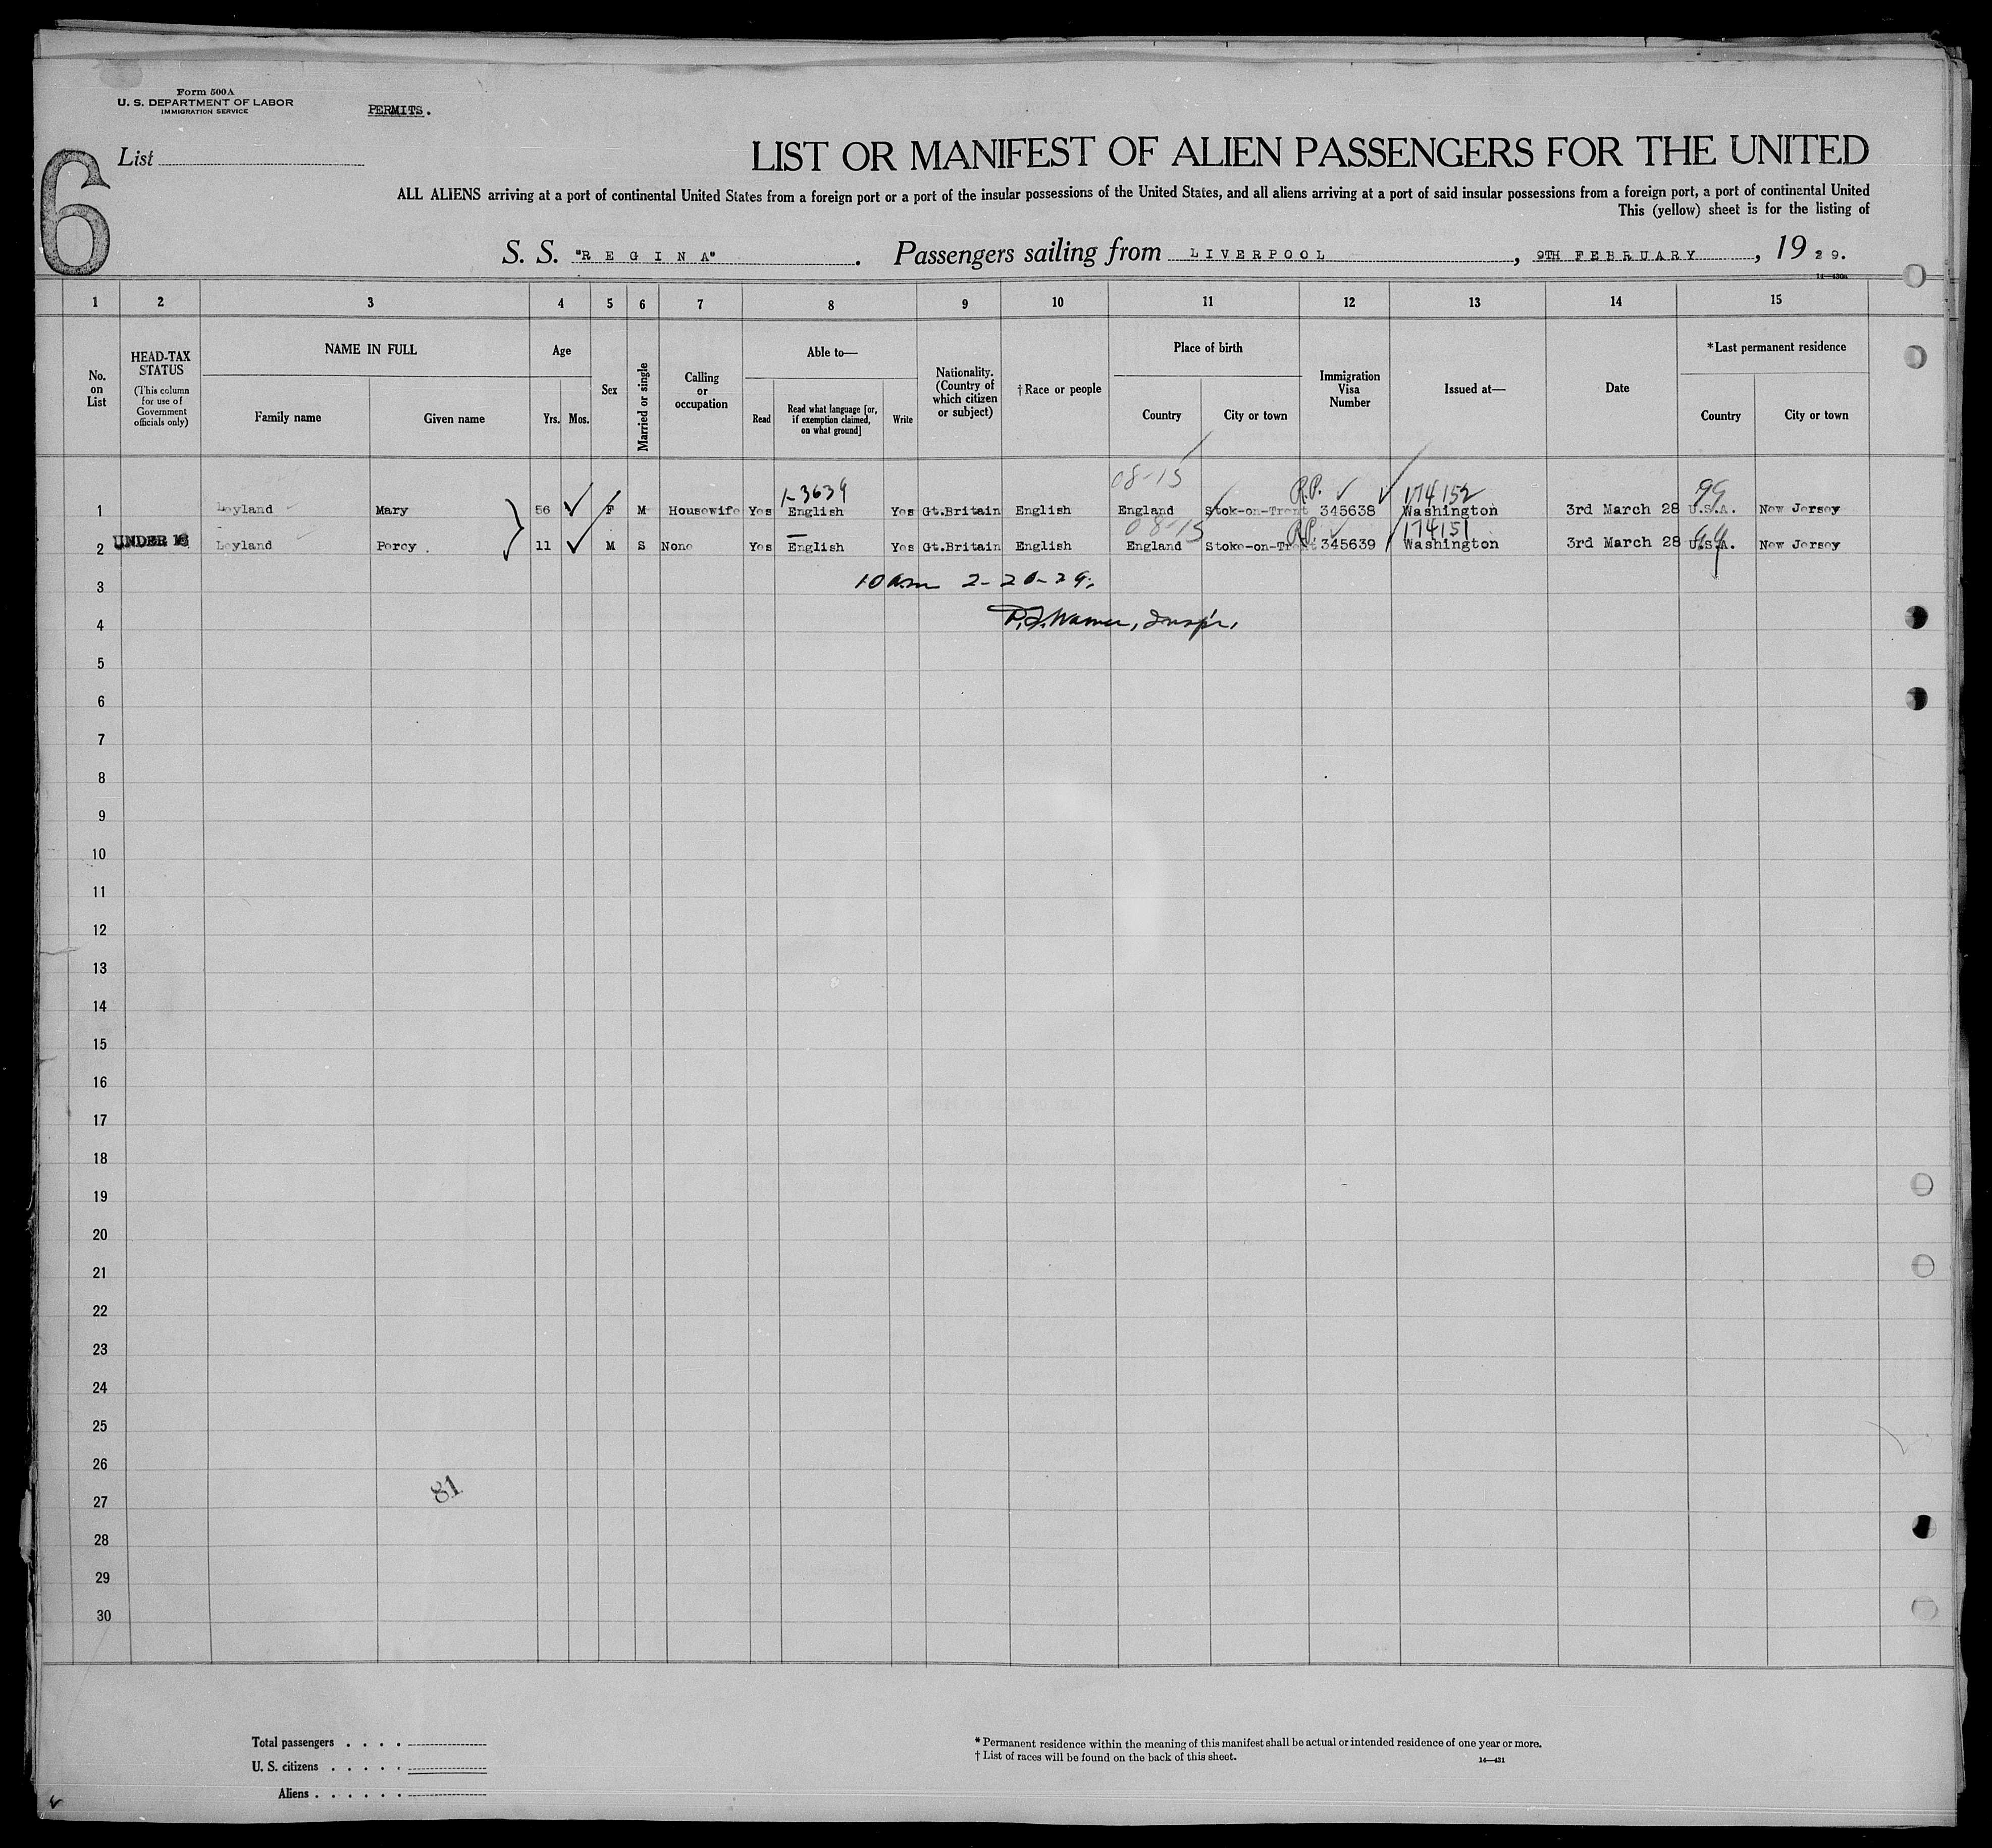 Form 500A
U. S. DEPARTMENT OF LABOR
IMMIGRATION SERVICE
PERMITS.
6
List
LIST OR MANIFEST OF ALIEN PASSENGERS FOR THE UNITED
ALL ALIENS arriving at a port of continental United States from a foreign port or a port of the insular possessions of the United States, and all aliens arriving at a port of said insular possessions from a foreign port, a port of continental United
This (yellow) sheet is for the listing of
S. S. "REGINA". Passengers sailing from LIVERPOOL, 9TH FEBRUARY, 1929.
14—430a
1 2 3 4 5 6 7 8 9 10 11 12 13 14 15
No. on List
HEAD-TAX STATUS
(This column for use of Government officials only)
NAME IN FULL
Family name
Given name
Age
Yrs. Mos.
Sex
Married or single
Calling or occupation
Able to—
Read
Read what language [or, if exemption claimed, on what ground]
Write
Nationality. (Country of which citizen or subject)
† Race or people
Place of birth
Country
City or town
Immigration Visa Number
Issued at—
Date
*Last permanent residence
Country
City or town
08-15
1-3639 R.P. 174152 99
1 Leyland Mary 56 F M Housewife Yes English Yes Gt.Britain English England Stok-on-Trent 345638 Washington 3rd March 28 U.S.A. New Jersey
08-15 R.P. 174151 99
2 UNDER 16 Leyland Percy. 11 M S None Yes English Yes Gt.Britain English England Stoke-on-Trent 345639 Washington 3rd March 28 U.S.A. New Jersey
3 10 am 2-20-29.
4 Insp'r.
5
6
7
8
9
10
11
12
13
14
15
16
17
18
19
20
21
22
23
24
25
26
81
27
28
29
30
Total passengers . . . .
U. S. citizens . . . . .
Aliens . . . . . .
* Permanent residence within the meaning of this manifest shall be actual or intended residence of one year or more.
† List of races will be found on the back of this sheet.
14—431